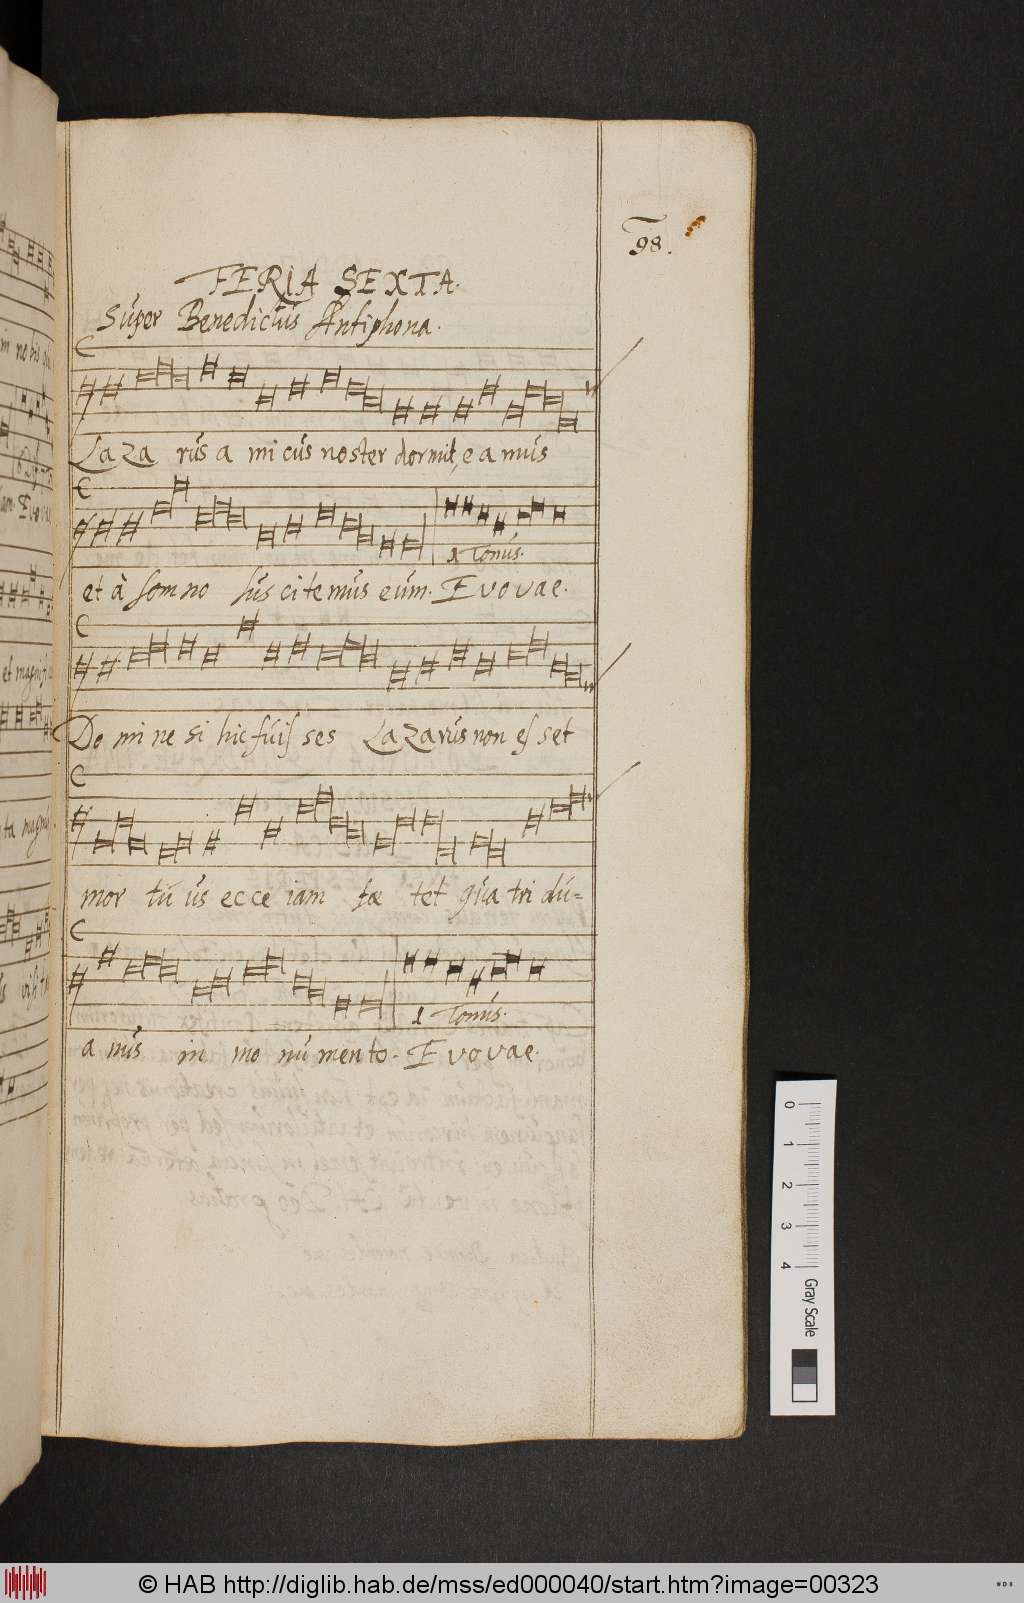 98.
FERIA SEXTA.
Super Benedictus Antiphona.
La za rus a mi cus noster dormit, e a mus
1 Tonus.
et à somno sus citemus eum. Evovae.
Do mi ne si hic fuisses Lazarus non esset
mor tu us ecce iam fœ tet quatridu=
1 Tonus.
a nus in mo numento. Evovae.
0
1
2
3
4
Gray Scale
© HAB http://diglib.hab.de/mss/ed000040/start.htm?image=00323